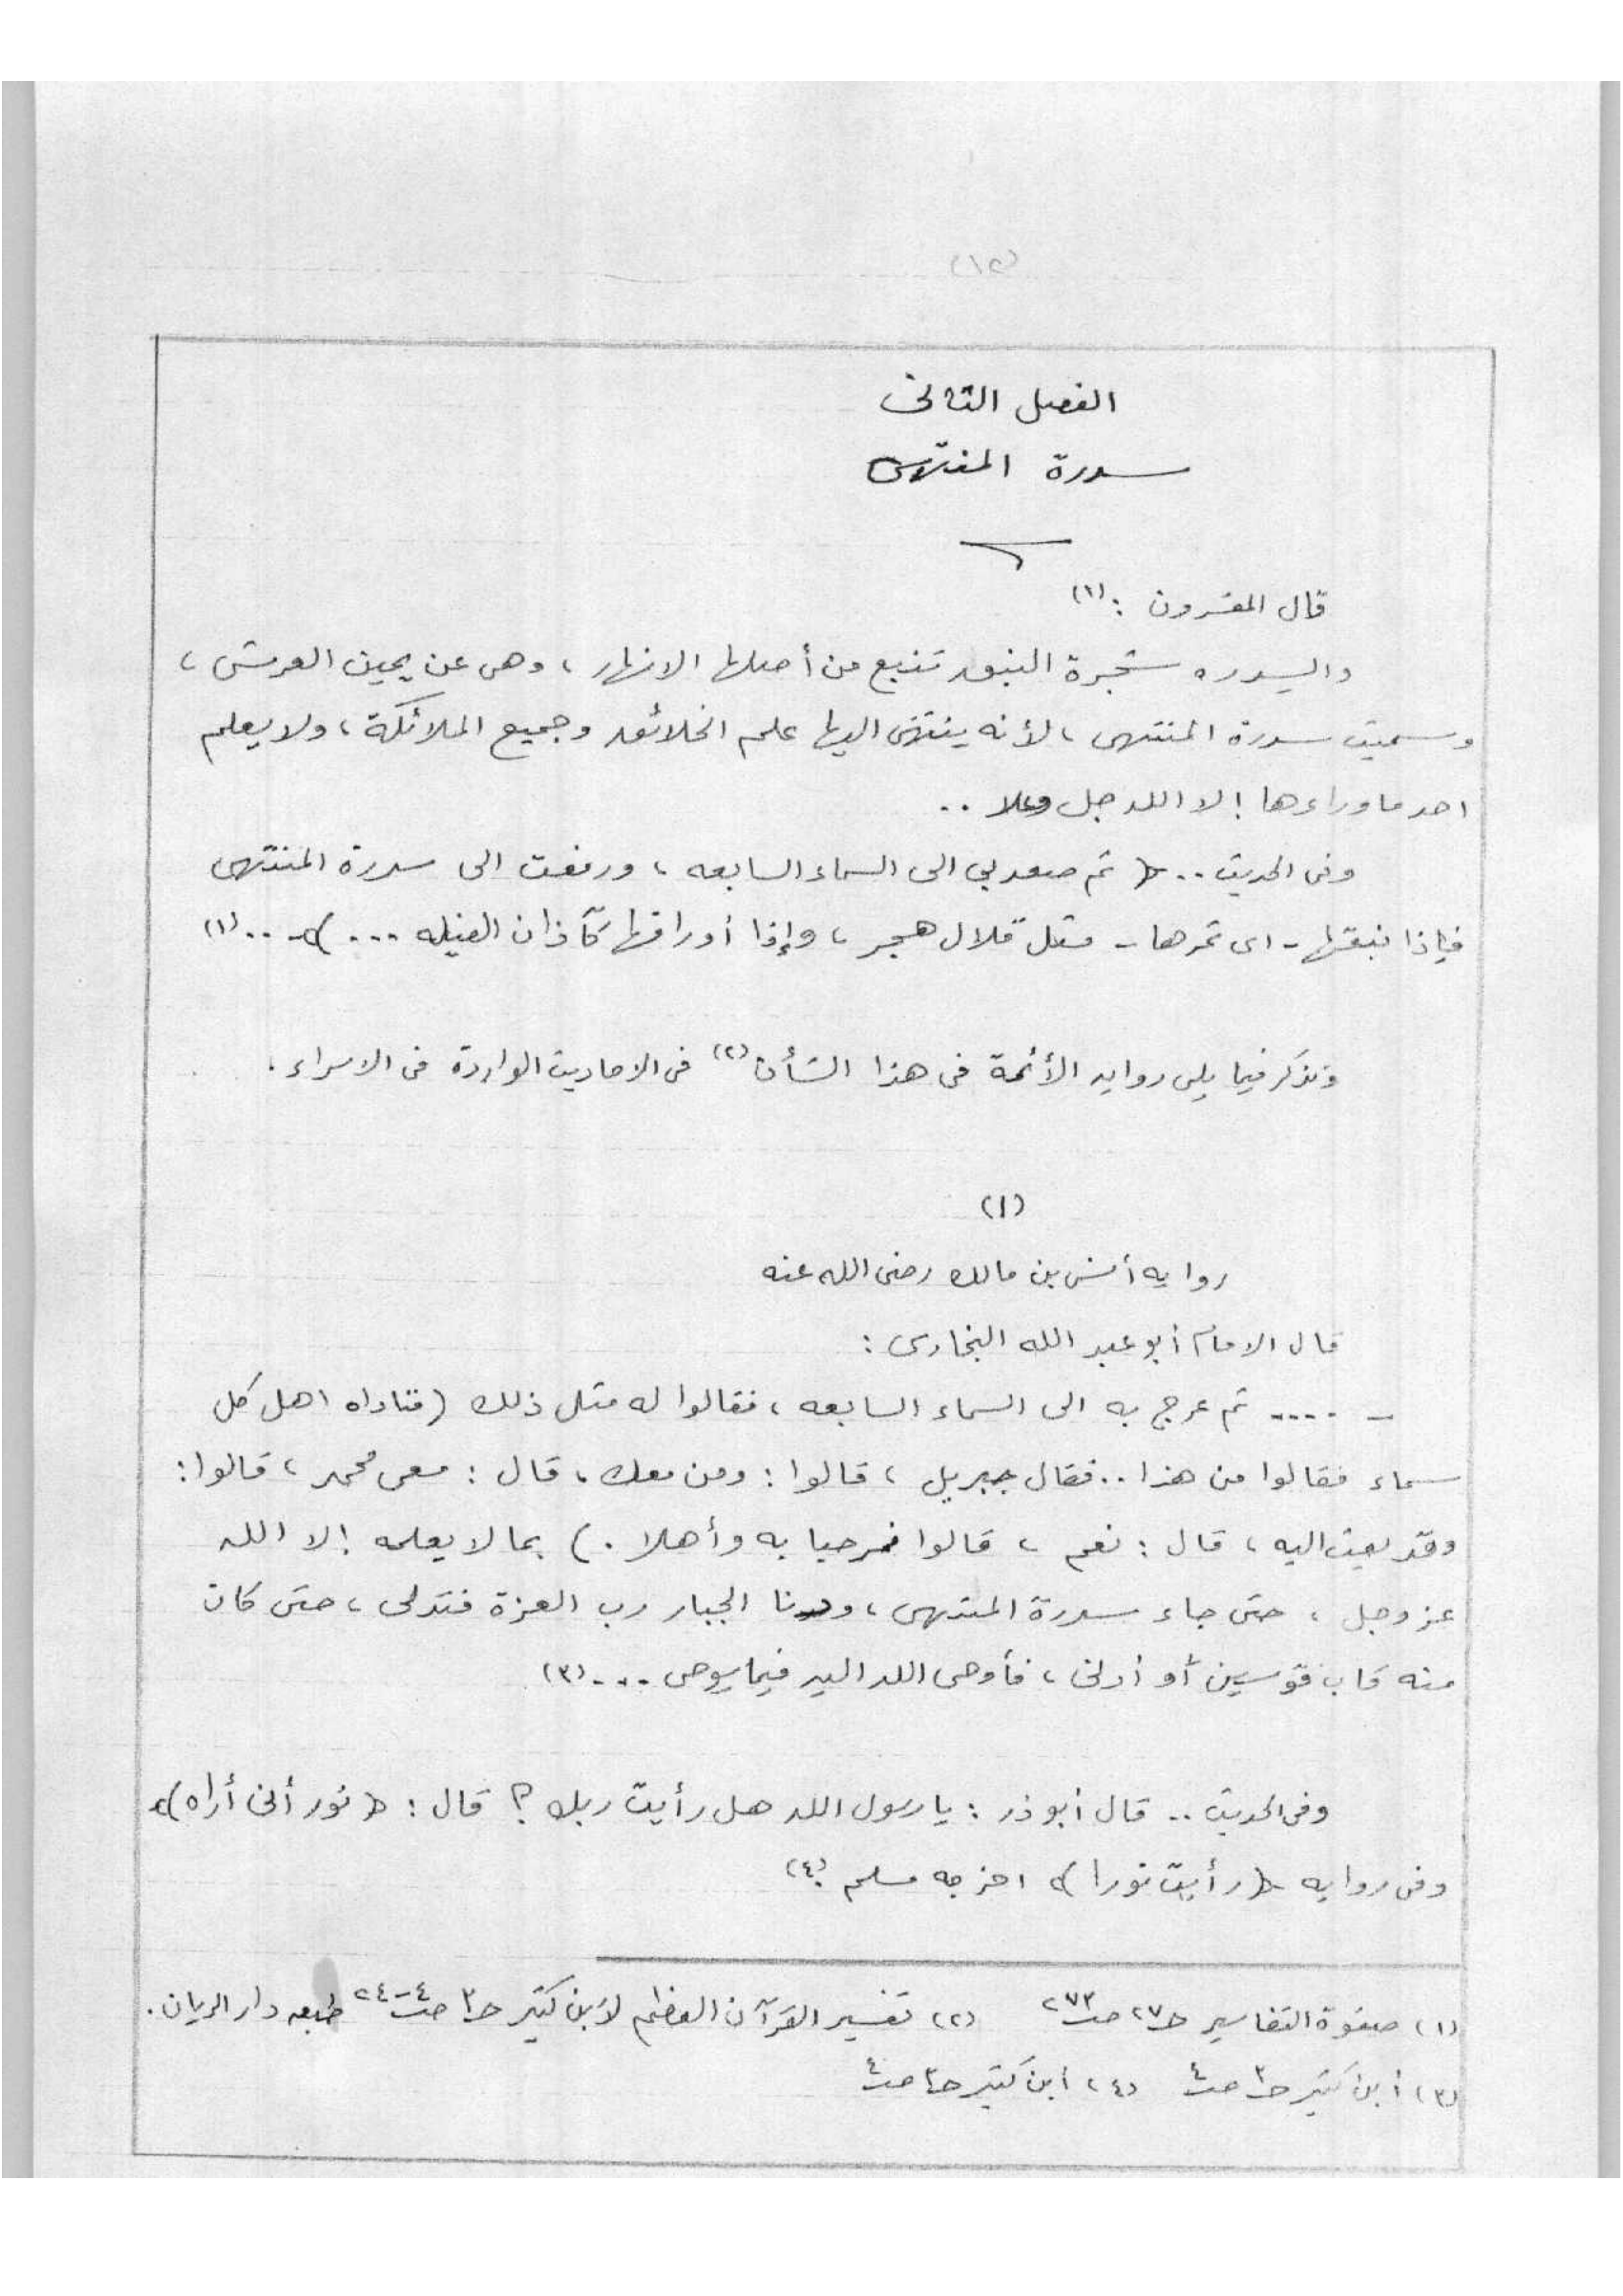 (١٢)
الفصل الثانى
سدرة المنتهى
قال المفسرون : (١)
والسدره شجرة النبق تنبع من أصلها الانهار ، وهى عن يمين العرش ،
وسميت سدرة المنتهى ، لأنه ينتهى اليها علم الخلائق وجميع الملائكة ، ولا يعلم
احد ما وراءها إلا الله جل وعلا ..
وفى الحديث .. « ثم صعد بي الى السماء السابعه ، ورفعت الى سدرة المنتهى
فإذا نبقها - اى ثمرها - مثل قلال هجر ، وإذا أوراقها كآذان الفيله ... » .. (١)
ونذكر فيما يلى روايه الأئمة فى هذا الشأن (٢) فى الاحاديث الواردة فى الاسراء .
(١)
روايه أنس بن مالك رضى الله عنه
قال الامام أبو عبد الله البخارى :
- .... ثم عرج به الى السماء السابعه ، فقالوا له مثل ذلك (فناداه اهل كل
سماء فقالوا من هذا .. فقال جبريل ، قالوا : ومن معك ، قال : معى محمد ، قالوا :
وقد بعث اليه ، قال : نعم ، قالوا فمرحبا به وأهلا .) بما لا يعلمه إلا الله
عز وجل ، حتى جاء سدرة المنتهى ، ودنا الجبار رب العزة فتدلى ، حتى كان
منه قاب قوسين أو أدنى ، فأوحى الله اليه فيما يوحى ... (٣)
وفى الحديث .. قال أبو ذر : يا رسول الله هل رأيت ربك ؟ قال : « نور أنى أراه »
وفى روايه « رأيت نورا » اخرجه مسلم . (٤)
(١) صفوة التفاسير حـ٢٧ صـ٢٧٣ (٢) تفسير القرآن العظيم لابن كثير حـ٣ صـ٤-٢٤ طبعه دار الريان .
(٣) أبن كثير حـ٣ صـ٤ (٤) أبن كثير حـ٣ صـ٤